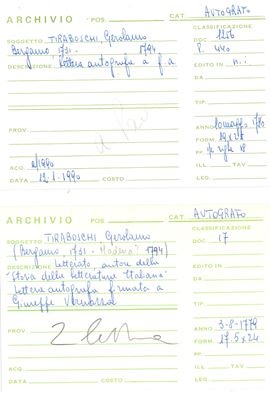 ARCHIVIO POS. CAT. AUTOGRAFO
SOGGETTO TIRABOSCHI, Gerolamo CLASSIFICAZIONE
Bergamo, 1731 - 1794 DOC. 1256
DESCRIZIONE Lettera autografa f.a. R. 440
EDITO IN n.:
DA
TIP.
PROV. ANNO 10 maggio 1786
FORM. 19 x 24
ACQ. 2/1990
ILL. TAV.
DATA 12.1.1990 COSTO LEG.
ARCHIVIO POS. CAT. AUTOGRAFO
SOGGETTO TIRABOSCHI, Gerolamo CLASSIFICAZIONE
(Bergamo, 1731 - Modena 1794) DOC. 17
DESCRIZIONE Letterato, autore della EDITO IN
"Storia della letteratura italiana" DA
Lettera autografa firmata a
Giuseppe Vernazza TIP.
PROV. ANNO 3-8-1779
FORM. 17,5 x 24
ACQ. ILL. TAV.
DATA COSTO LEG.